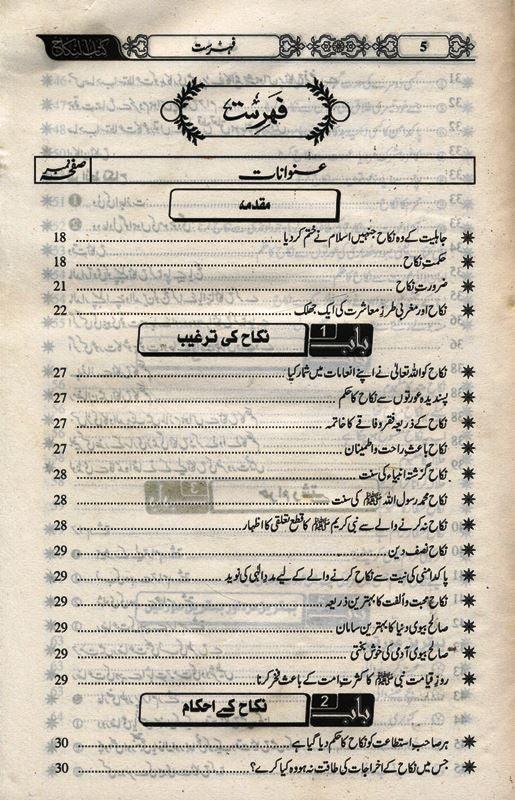 5 فہرست کتاب النکاح
فہرست
عنوانات صفحہ نمبر
مقدمہ
جاہلیت کے وہ نکاح جنہیں اسلام نے ختم کر دیا 18
حکمتِ نکاح 18
ضرورتِ نکاح 21
نکاح اور مغربی طرزِ معاشرت کی ایک جھلک 22
باب 1 نکاح کی ترغیب
نکاح کو اللہ تعالیٰ نے اپنے انعامات میں شمار کیا 27
پسندیدہ عورتوں سے نکاح کا حکم 27
نکاح کے ذریعہ فقر و فاقے کا خاتمہ 27
نکاح باعثِ راحت و اطمینان 27
نکاح گزشتہ انبیاء کی سنت 28
نکاح محمد رسول اللہ ﷺ کی سنت 28
نکاح نہ کرنے والے سے نبی کریم ﷺ کا قطع تعلقی کا اظہار 28
نکاح نصف دین 29
پاکدامنی کی نیت سے نکاح کرنے والے کے لیے مددِ الٰہی کی نوید 29
نکاح محبت و اُلفت کا بہترین ذریعہ 29
صالح بیوی دنیا کا بہترین سامان 29
صالح بیوی آدمی کی خوش بختی 29
روزِ قیامت نبی ﷺ کا کثرتِ امت کے باعث فخر کرنا 29
باب 2 نکاح کے احکام
ہر صاحب استطاعت کو نکاح کا حکم دیا گیا ہے 30
جس میں نکاح کے اخراجات کی طاقت نہ ہو وہ کیا کرے؟ 30